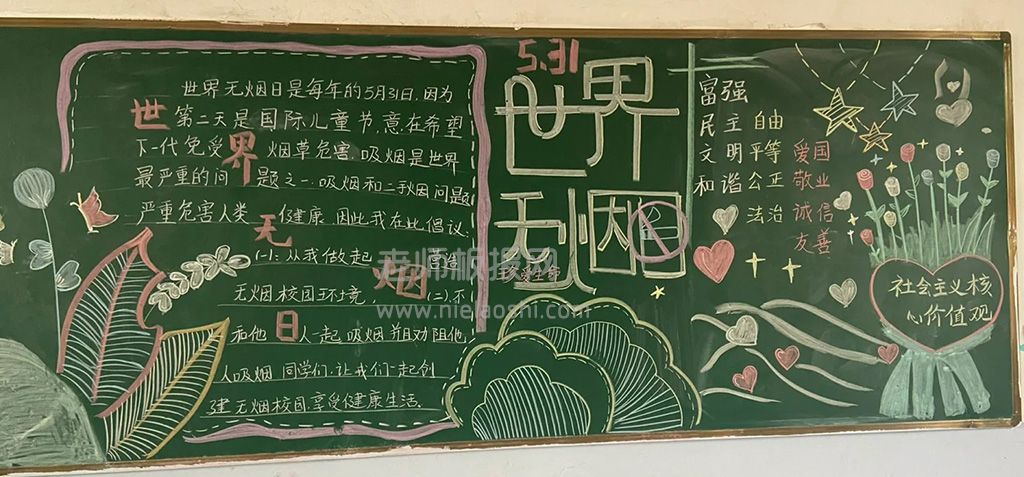 世界无烟日是每年的5月31日,因为
世第二天是国际儿童节,意在希望
下一代免受界烟草危害.吸烟是世界
最严重的问题之一.吸烟和二手烟问题
严重危害人类无健康,因此我在此倡议
(一):从我做起烟
无烟校园环境, (二)不
和他日人一起吸烟并且劝阻他
人吸烟 同学们,让我们一起创
建无烟校园,享受健康生活.
5.31
世界
无烟
日
富强
民主
文明
和谐
自由
平等
公正
法治
爱国
敬业
诚信
友善
社会主义核
心价值观
老师板报网
www.nielaoshi.com